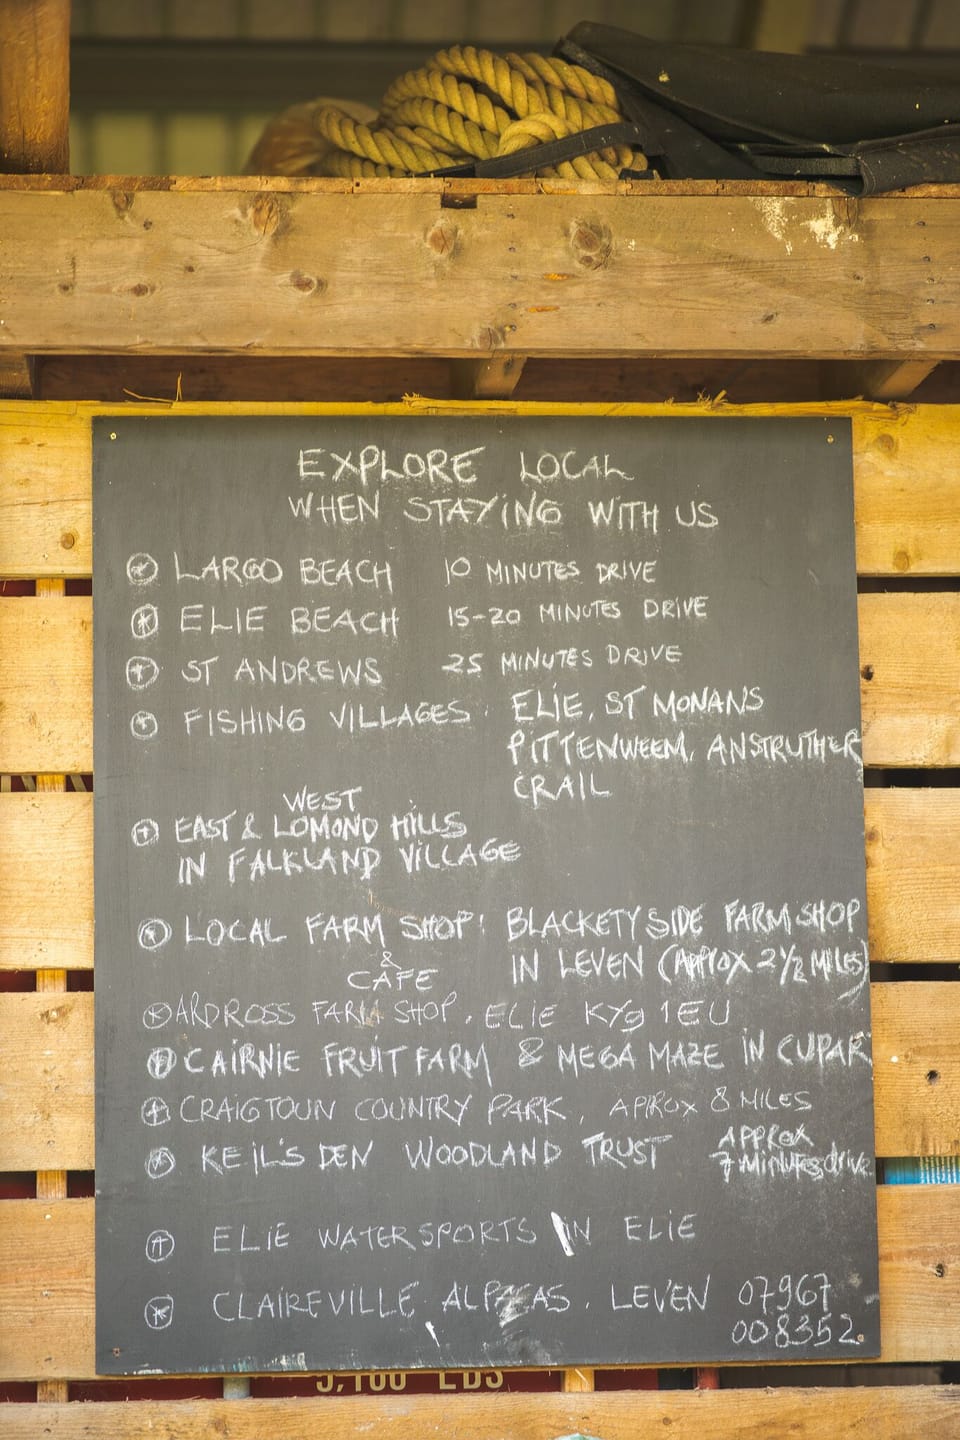 EXPLORE LOCAL
WHEN STAYING WITH US
LARGO BEACH 10 MINUTES DRIVE
ELIE BEACH 15-20 MINUTES DRIVE
ST ANDREWS 25 MINUTES DRIVE
FISHING VILLAGES: ELIE, ST MONANS
PITTENWEEM, ANSTRUTHER
CRAIL
WEST
EAST & LOMOND HILLS
IN FALKLAND VILLAGE
LOCAL FARM SHOP: BLACKETYSIDE FARM SHOP
& CAFE IN LEVEN (APPROX 2 1/2 MILES)
ARDROSS FARM SHOP, ELIE KY9 1EU
CAIRNIE FRUIT FARM & MEGA MAZE IN CUPAR
CRAIGTOUN COUNTRY PARK, APROX 8 MILES
KEIL'S DEN WOODLAND TRUST APPROX
7 Minutes drive
ELIE WATERSPORTS IN ELIE
CLAIREVILLE ALPACAS, LEVEN 07967
008352
5,100 LBS